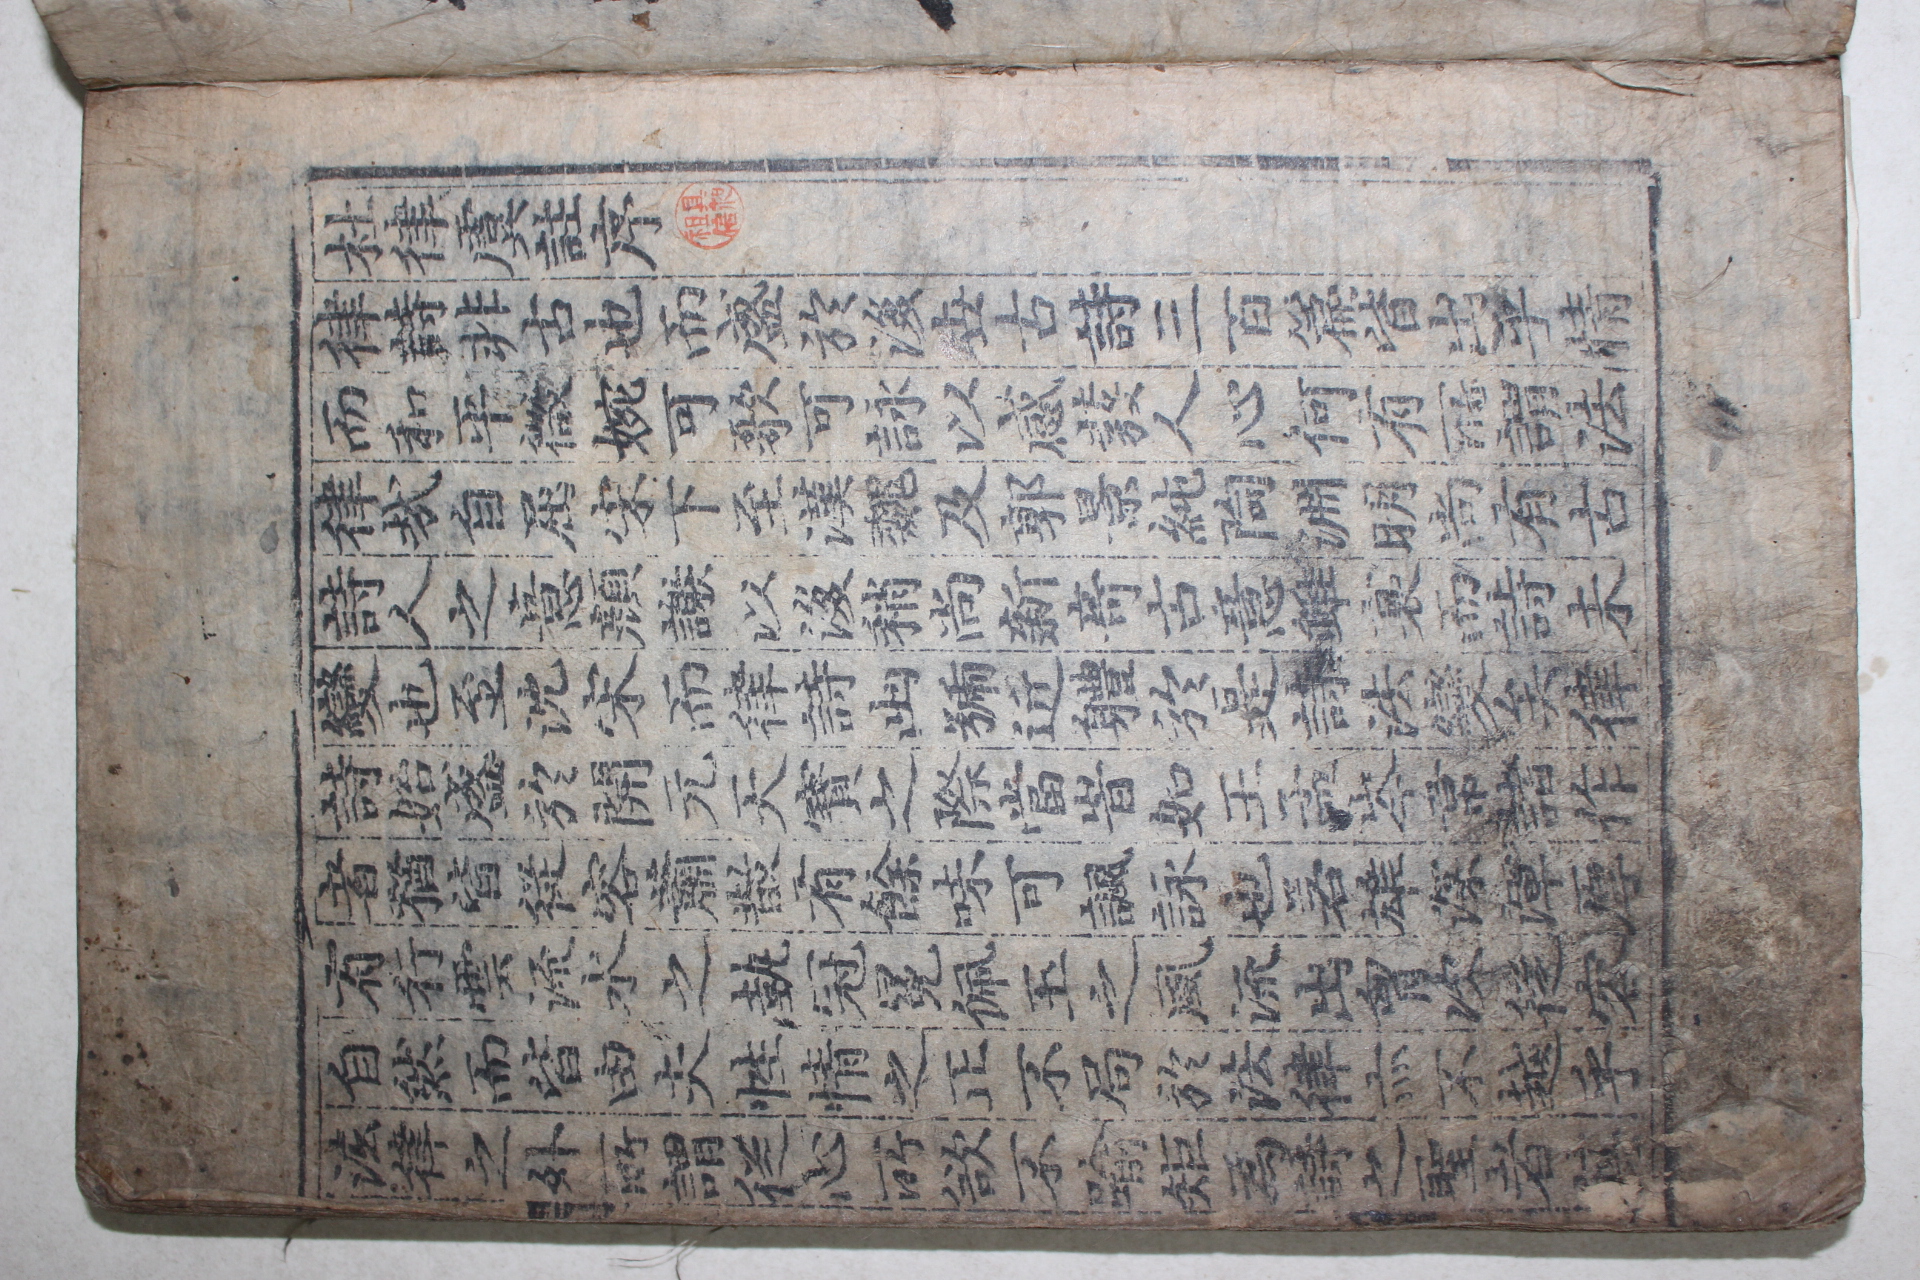 杜律虞註序
律詩非古也而盛於後世古詩三百篇皆出乎情
而和平微婉可歌可詠以感發人心何有所謂法
律哉自屈宋下至漢魏及郭景純陶淵明尚有古
詩人之意顔謝以後稍尚新竒古意雖衰而詩未
變也至沈宋而律詩出號近體於是詩法變矣律
詩始盛於開元天寶之際當旹如王孟岑常諸作
者猶皆從容蕭散有餘味可諷詠也若雄深渾厚
有行雲流水之埶冠冕佩玉之風流出胷次從容
自然而皆由夫性情之正不局於法律亦不越乎
法律之外所謂從心所欲不踰矩爲詩之聖者